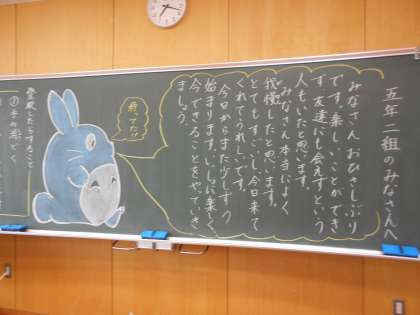 五年二組のみなさんへ
みなさん、おひさしぶり
です。楽しいことができ
ず、友達にも会えずという
人もいたと思います。
みなさん本当によく
我慢したと思います。
とてもすごいし、今日来て
くれてうれしいです。
今日からまた少しずつ
始まります。いっしょに楽しく、
今できることをやっていき
ましょう。
待ってたよ
登校したらすること
①手の消どく